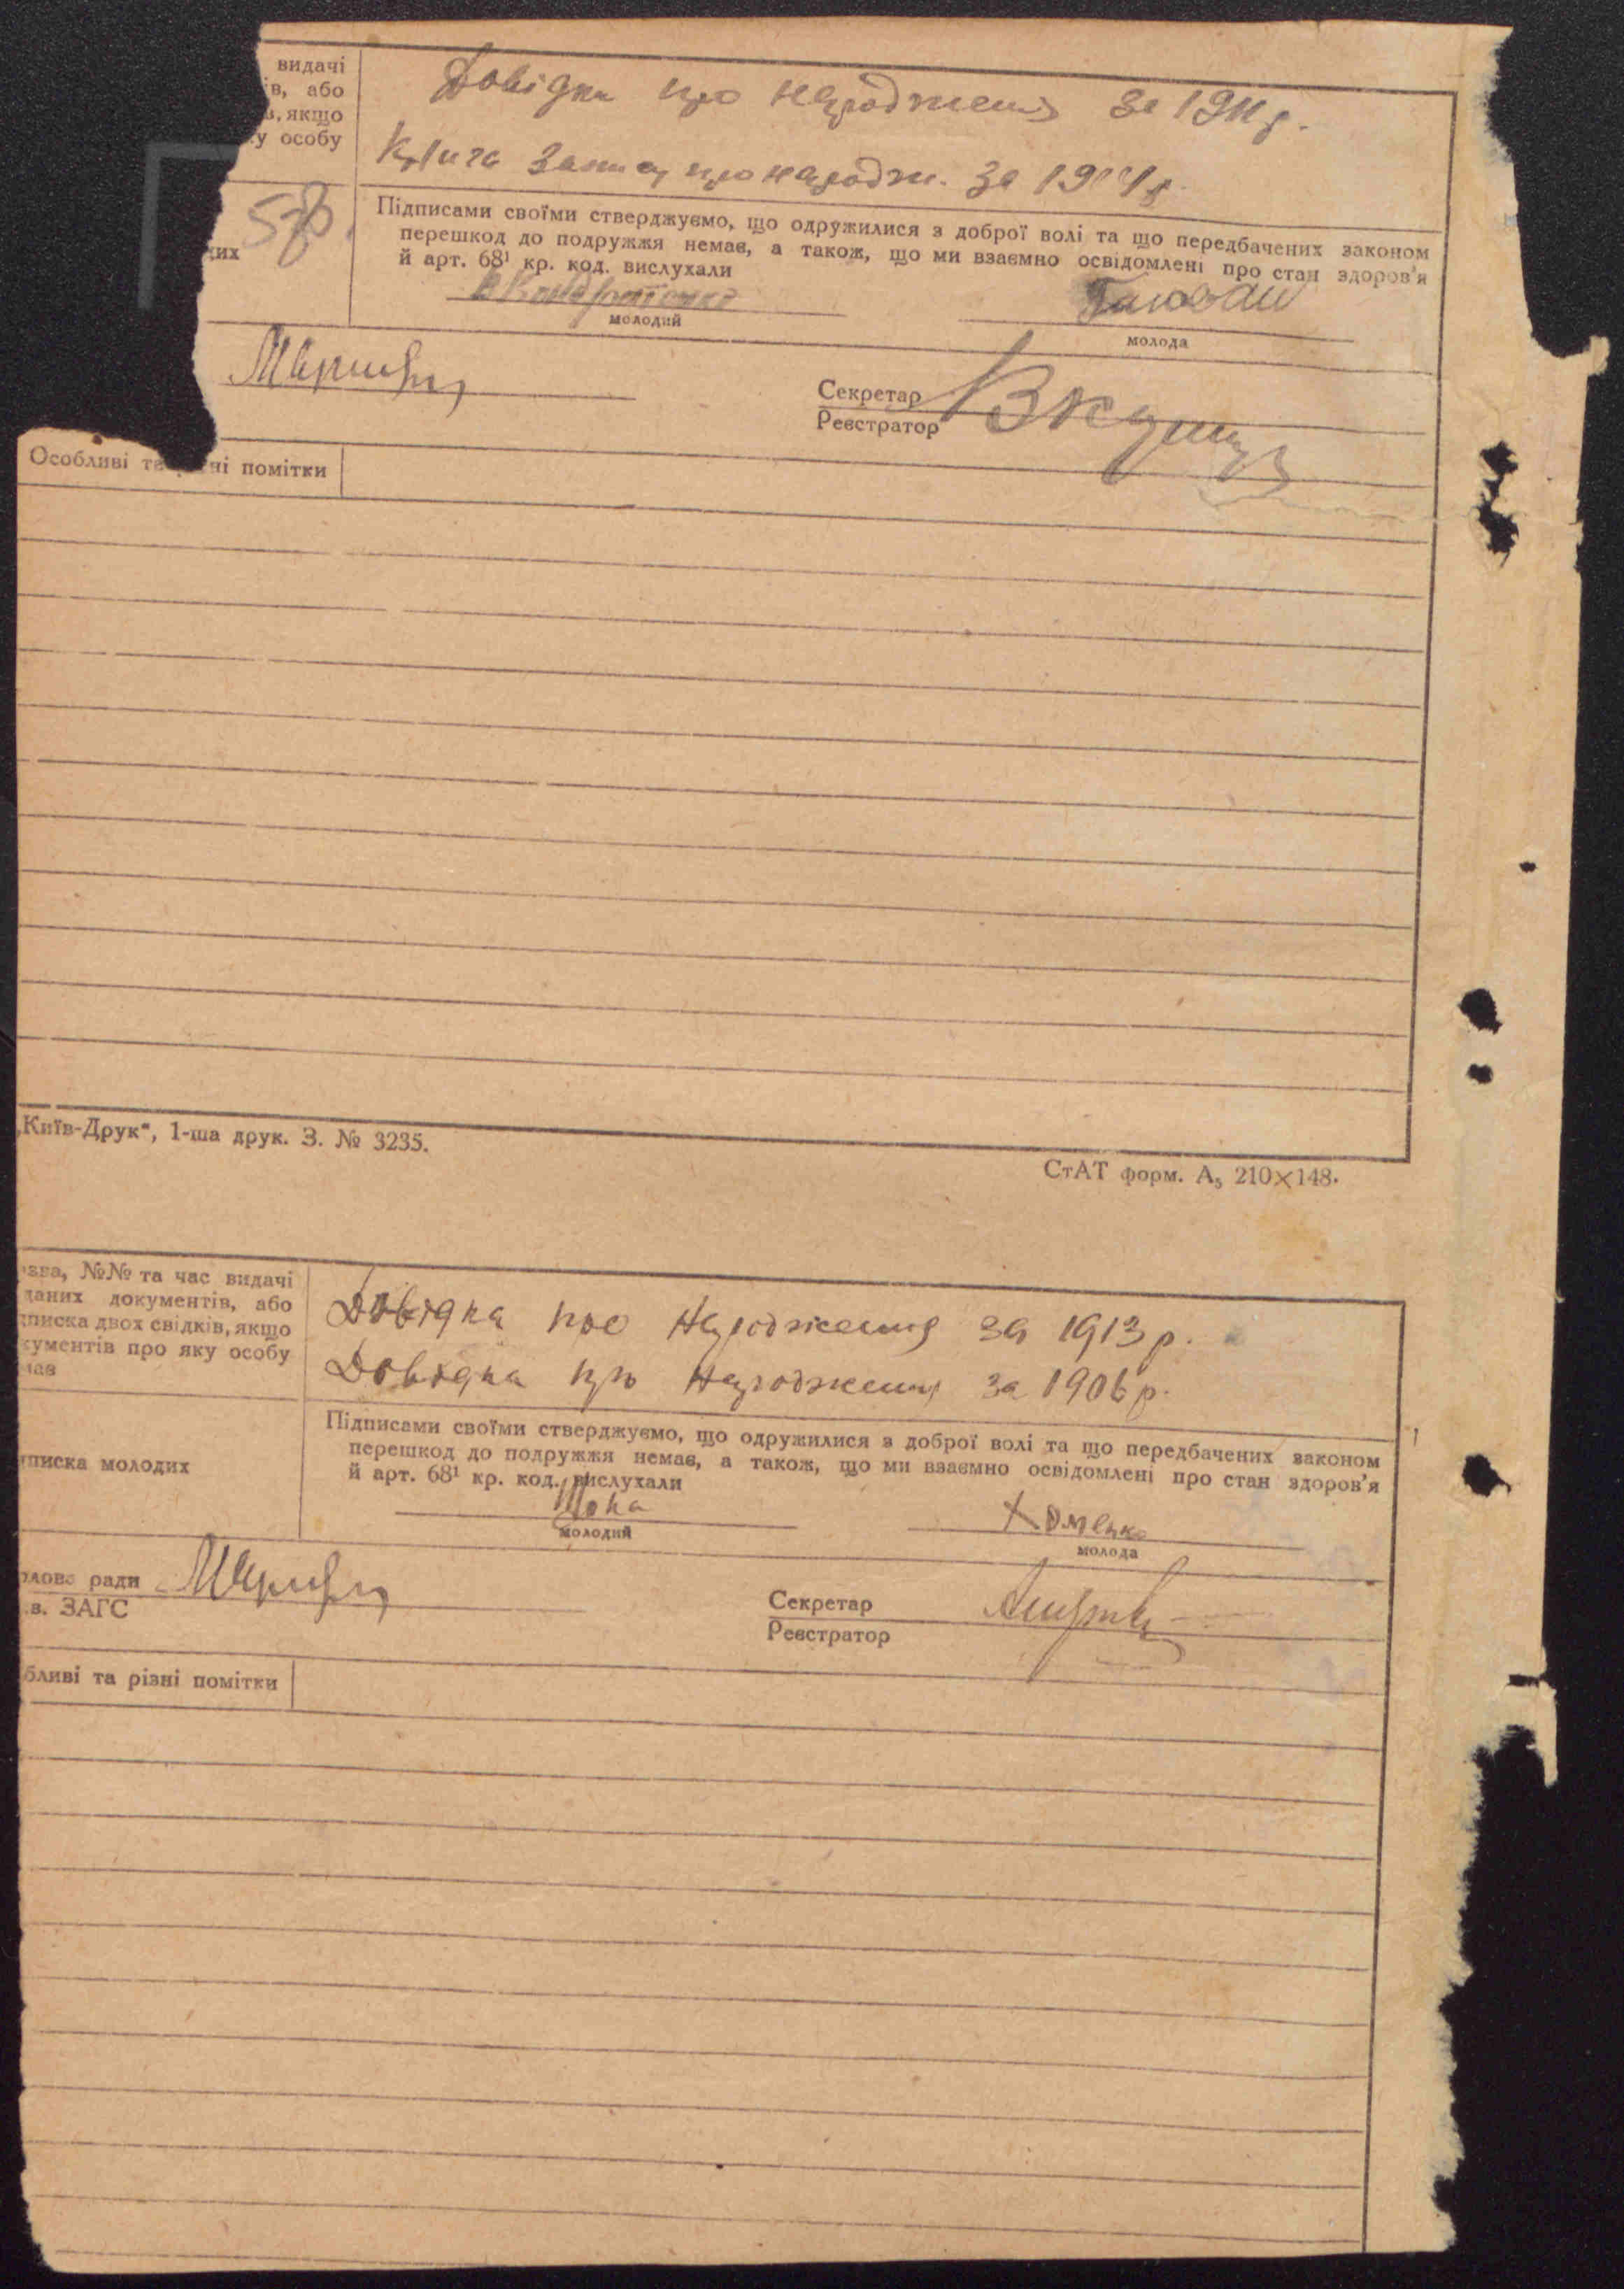 видачі
ів, або
в, якщо
у особу
Довідка про народження за 1911 р.
Книга запису про народж. за
их
Підписами своїми стверджуємо, що одружилися з доброї волі та що передбачених законом
перешкод до подружжя немає, а також, що ми взаємно освідомлені про стан здоров'я
й арт. 68¹ кр. код. вислухали
молодий
молода
Секретар
Реєстратор
Особливі та різні помітки
„Київ-Друк“, 1-ша друк. З. № 3235.
СтАТ форм. А₅ 210×148.
зва, №№ та час видачі
даних документів, або
дписка двох свідків, якщо
кументів про яку особу
має
Довідка про Народження за 1913 р.
Довідка про Народження за 1906 р.
писка молодих
Підписами своїми стверджуємо, що одружилися з доброї волі та що передбачених законом
перешкод до подружжя немає, а також, що ми взаємно освідомлені про стан здоров'я
й арт. 68¹ кр. код. вислухали
Хоменко
молодий
молода
лова ради
в. ЗАГС
Секретар
Реєстратор
бливі та різні помітки